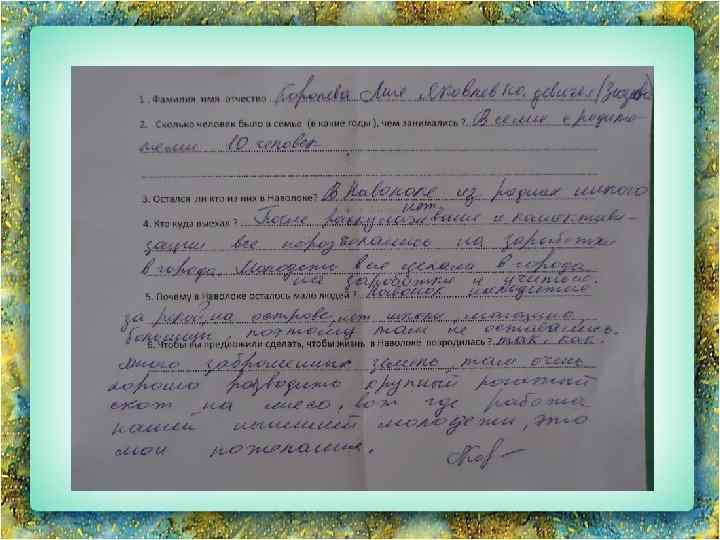 1. Фамилия имя отчество Королёва Лие Яковлевна. девичья
2. Сколько человек было в семье (в какие годы), чем занимались? В семье с родите-
лями 10 человек
3. Остался ли кто из них в Наволоке? В Наволоке из родных никого
нет.
4. Кто куда выехал? После раскулачивание и коллективи-
зации все на заработки
в города. Молодежь вся уехала в города
на заработки и учиться.
5. Почему в Наволоке осталось мало людей? Наволок находится
за рекой, на острове, нет школы, магазина
больницы поэтому там не оставались.
6. Чтобы вы предложили сделать, чтобы жизнь в Наволоке возродилась? так как
много заброшенных земель, там очень
хорошо разводить крупный рогатый
скот на мясо, вот где работа
нашей нынешней молодежи, это
мои пожелания.